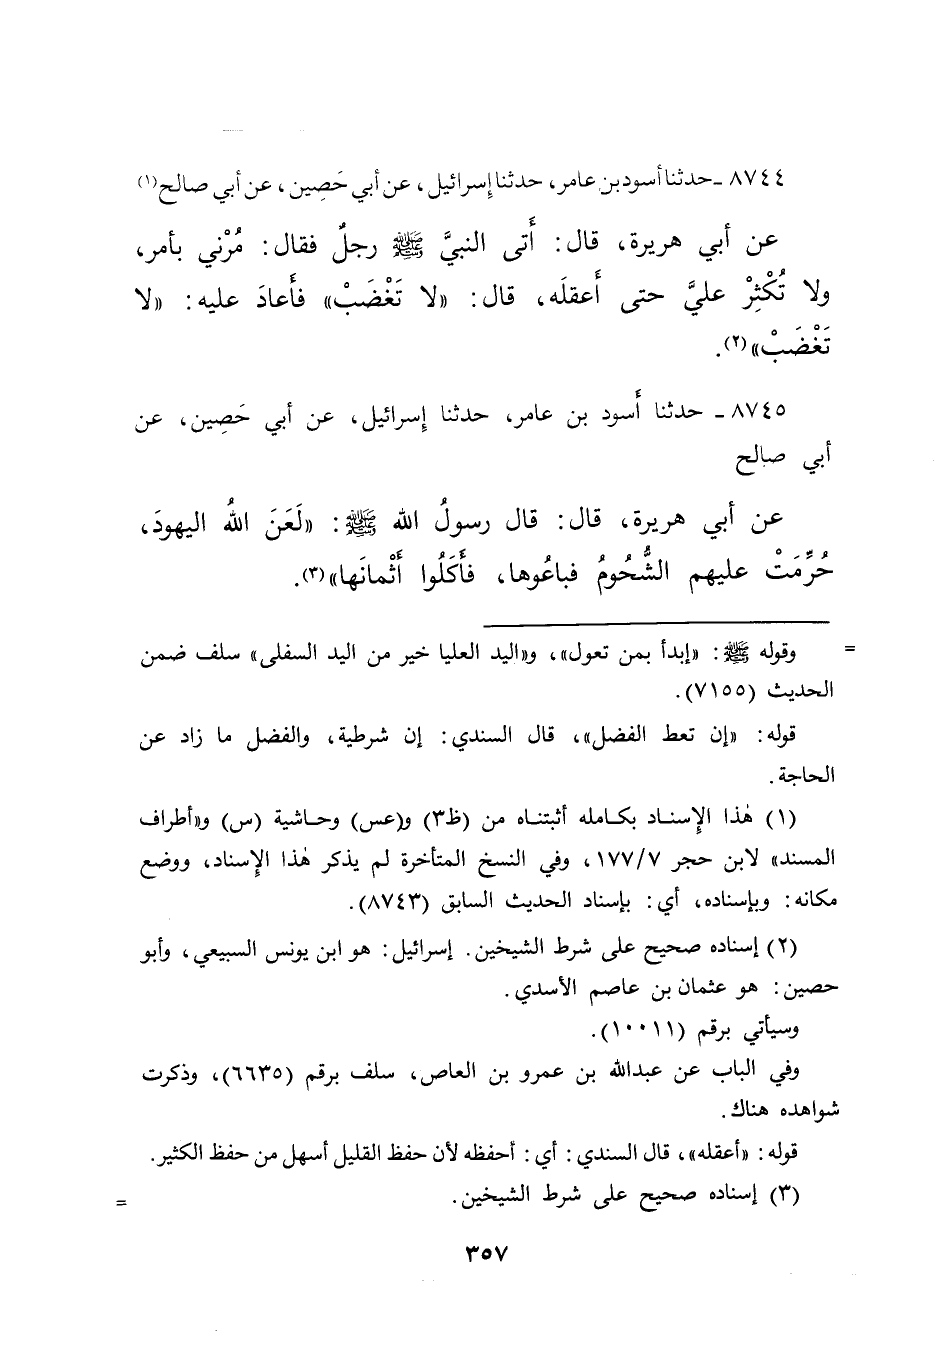 ٨٧٤٤ ـ حدثنا أسود بن عامر، حدثنا إسرائيل، عن أبي حَصِين، عن أبي صالح(١)
عن أبي هريرة، قال: أَتى النبيَّ ﷺ رجلٌ فقال: مُرْني بأمر،
ولا تُكْثِرْ عليَّ حتى أَعقلَه، قال: «لا تَغْضَبْ» فأَعادَ عليه: «لا
تَغْضَبْ»(٢).
٨٧٤٥ ـ حدثنا أَسود بن عامر، حدثنا إِسرائيل، عن أبي حَصِين، عن
أبي صالح
عن أبي هريرة، قال: قال رسولُ الله ﷺ: «لَعَنَ اللهُ اليهودَ،
حُرِّمَتْ عليهم الشُّحُومُ فباعُوها، فأَكَلُوا أَثْمانَها»(٣).
= وقوله ﷺ: «إبدأ بمن تعول»، و«اليد العليا خير من اليد السفلى» سلف ضمن
الحديث (٧١٥٥).
قوله: «إن تعط الفضل»، قال السندي: إن شرطية، والفضل ما زاد عن
الحاجة.
(١) هٰذا الإسناد بكامله أثبتناه من (ظ٣) و(عس) وحاشية (س) و«أطراف
المسند» لابن حجر ١٧٧/٧، وفي النسخ المتأخرة لم يذكر هٰذا الإسناد، ووضع
مكانه: وبإسناده، أي: بإسناد الحديث السابق (٨٧٤٣).
(٢) إسناده صحيح على شرط الشيخين. إسرائيل: هو ابن يونس السبيعي، وأبو
حصين: هو عثمان بن عاصم الأسدي.
وسيأتي برقم (١٠٠١١).
وفي الباب عن عبدالله بن عمرو بن العاص، سلف برقم (٦٦٣٥)، وذكرت
شواهده هناك.
قوله: «أعقله»، قال السندي: أي: أحفظه لأن حفظ القليل أسهل من حفظ الكثير.
(٣) إسناده صحيح على شرط الشيخين. =
٣٥٧